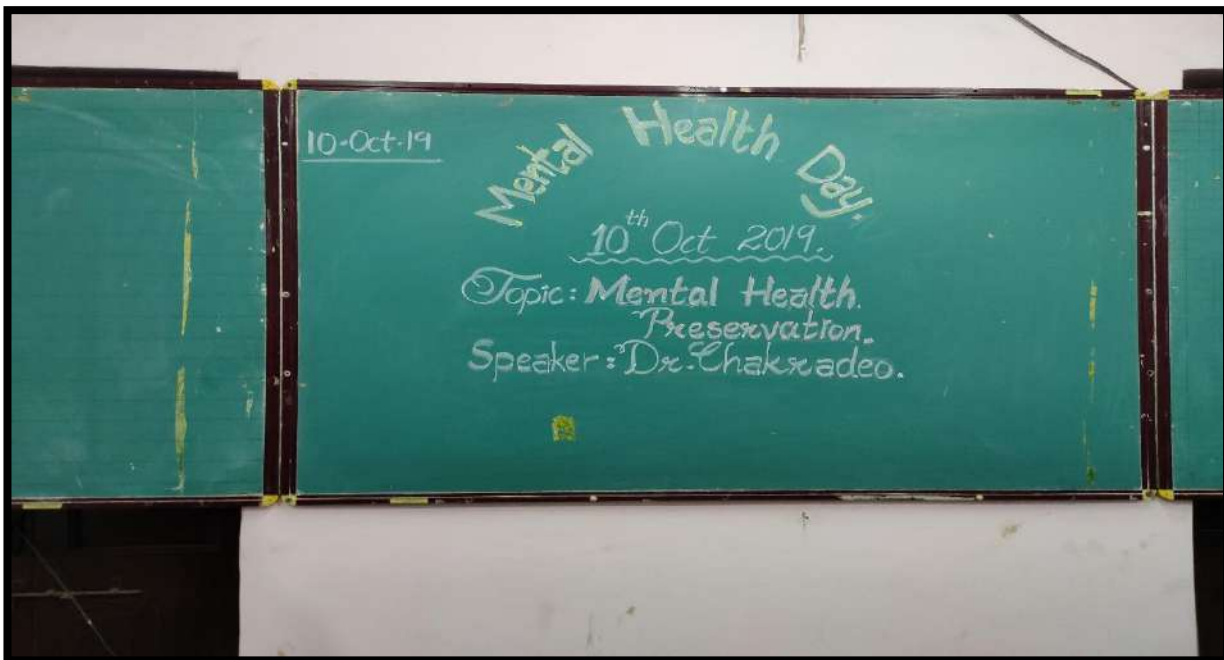 10-Oct-19
Mental Health Day.
10th Oct 2019.
Topic: Mental Health.
Preservation.
Speaker: Dr. Chakradeo.